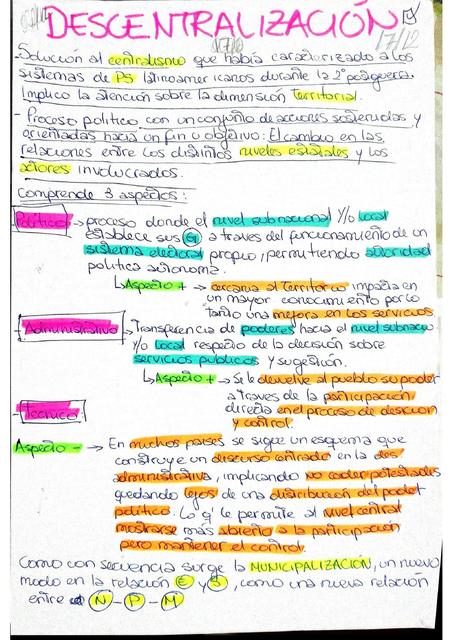 DESCENTRALIZACIÓN
17/12
- Solución al centralismo que había caracterizado a los
sistemas de PS latinoamericanos durante la 2° posguerra.
Implico la atención sobre la dimensión territorial.
- Proceso político con un conjunto de acciones sostenidas y
orientadas hacia un fin u objetivo: El cambio en las
relaciones entre los distintos niveles estatales y los
actores involucrados.
Comprende 3 aspectos:
Político → proceso donde el nivel subnacional y/o local
establece sus G a traves del funcionamiento de un
sistema electoral propio, permitiendo autoridad
politica autonoma.
↳ Aspecto + → cercania al territorio impacta en
un mayor conocimiento por lo
tanto una mejora en los servicios.
- Administrativo → Transferencia de poderes hacia el nivel subnac
y/o local respecto de la decisión sobre
servicios publicos y su gestión.
↳ Aspecto + → Se le devuelve al pueblo su poder
a traves de la participación
directa en el proceso de desicion
y control.
- Tecnico
Aspecto - → En muchos paises se sigue un esquema que
construye un discurso centrado en la des
administrativa, implicando no ceder potestades
quedando lejos de una distribución del poder
político. Lo q' le permite al nivel central
mostrarse más abierto a la participación
pero mantener el control.
Como con secuencia surge la MUNICIPALIZACIÓN, un nuevo
modo en la relación E y S, como una nueva relación
entre N - P - M